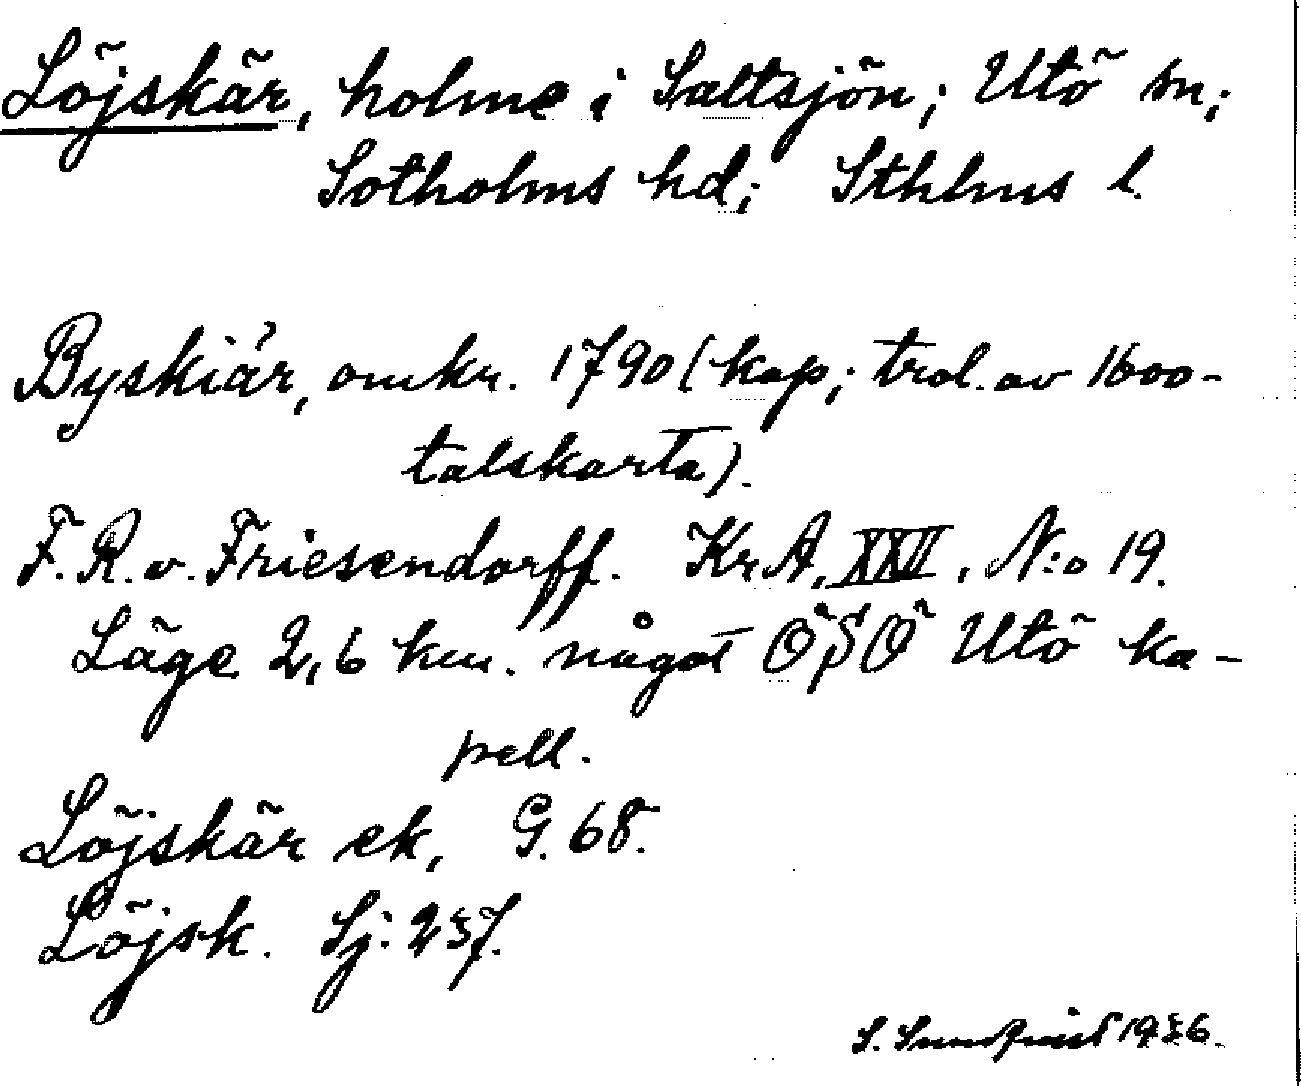 Löjskär, holme i Saltsjön; Utö sn;
Sotholms hd; Sthlms l.
Byskiär, omkr. 1790 (kop; trol. av 1600-
talskarta).
F. R. v. Friesendorff. Kr.A, XXII, N:o 19.
Läge 2,6 km. något ÖSÖ Utö ka-
pell.
Löjskär ek, G. 68.
Löjsk. Sj: 237.
S. Sundqvist 1936.